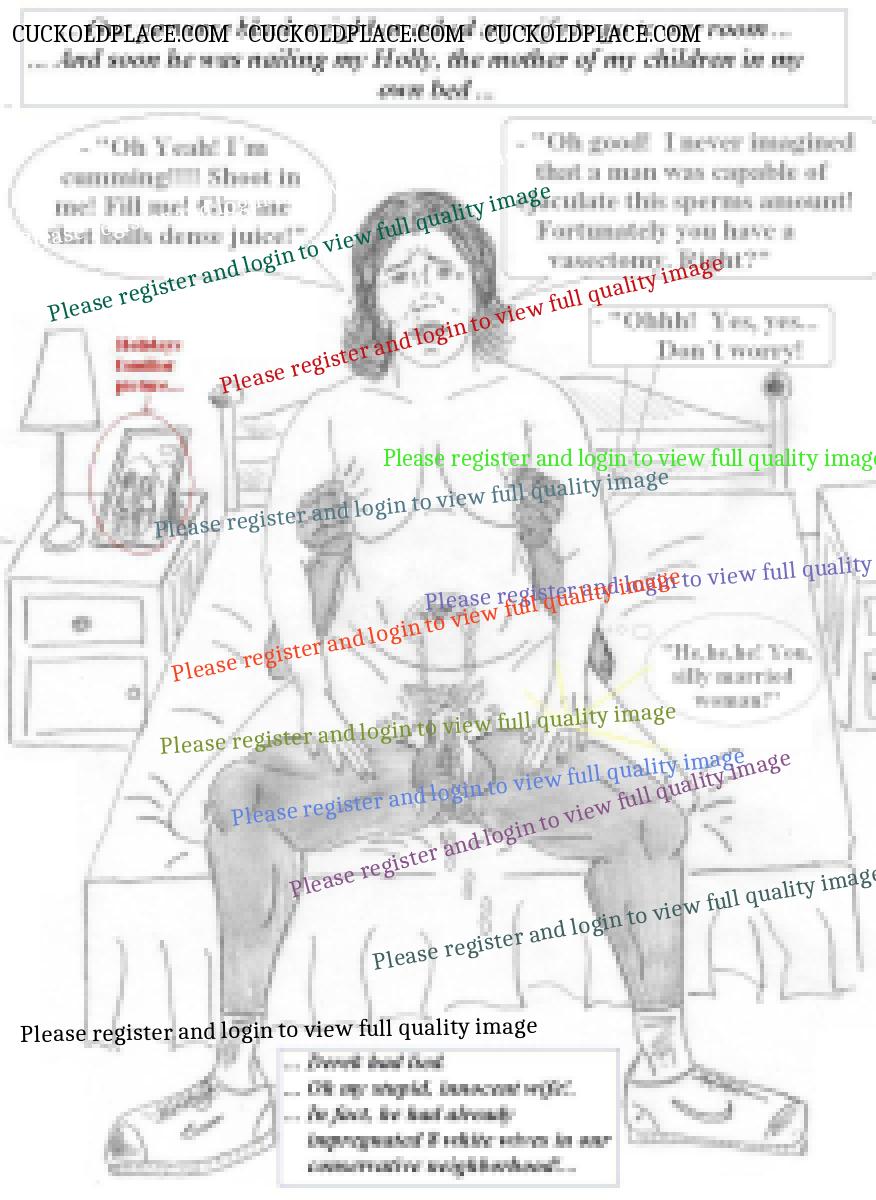 CUCKOLDPLACE.COM CUCKOLDPLACE.COM CUCKOLDPLACE.COM
room...
... And soon he was nailing my Holly, the mother of my children in my
own bed ...
- "Oh Yeah! I'm
cumming!!!! Shoot in
me! Fill me!
balls dense juice!"
- "Oh good! I never imagined
that a man was capable of
this sperms amount!
Fortunately you have a
vasectomy. Right?"
- "Ohhh! Yes, yes...
Don't worry!
Holidays
familiar
picture...
"He,he,he! You,
silly married
woman!"
Please register and login to view full quality image
Please register and login to view full quality image
Please register and login to view full quality image
Please register and login to view full quality image
Please register and login to view full quality
Please register and login to view full quality image
Please register and login to view full quality image
Please register and login to view full quality image
Please register and login to view full quality image
Please register and login to view full quality image
Please register and login to view full quality image
... Derek had lied
... Oh my stupid, innocent wife!.
... In fact, he had already
impregnated 8 white wives in our
conservative neighborhood!...